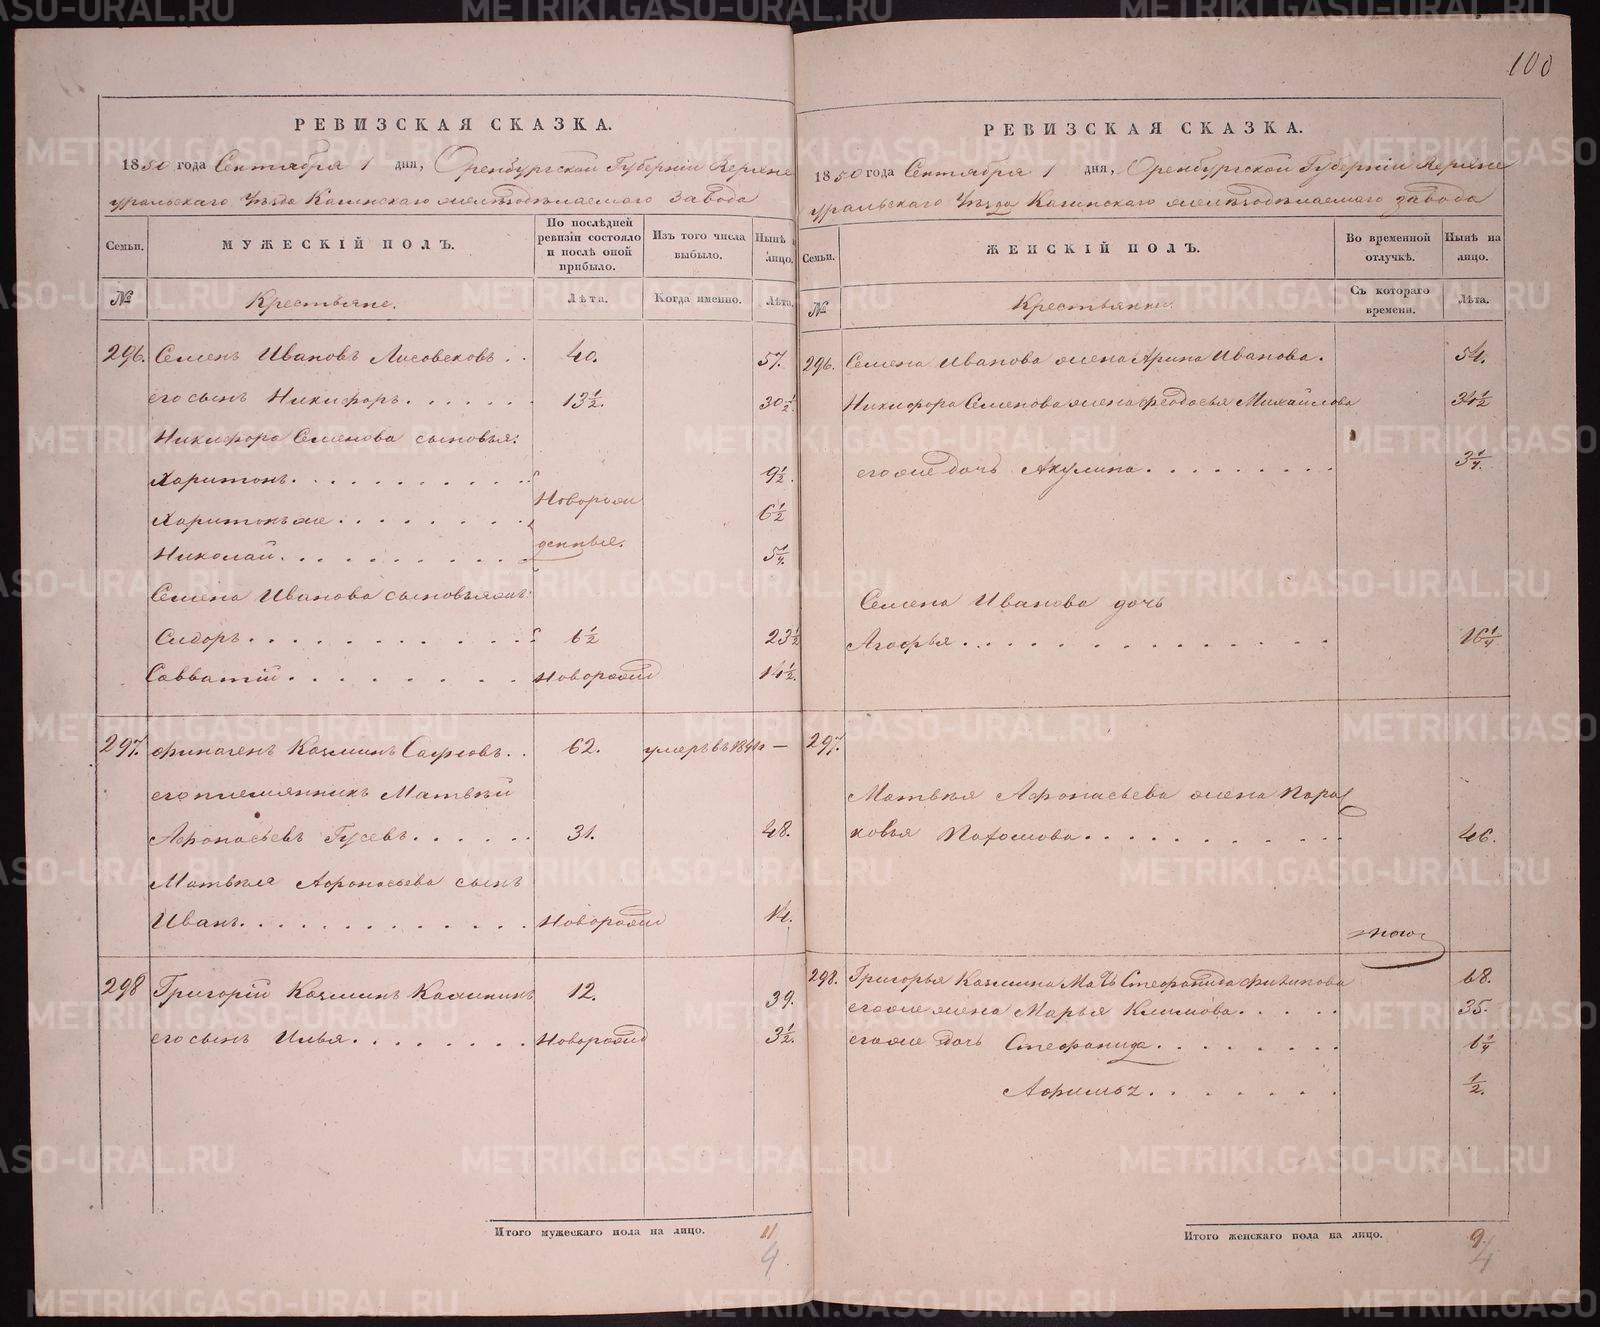 100
РЕВИЗСКАЯ СКАЗКА.
1850 года Сентября 1 дня, Оренбургской Губернiи Верхне
уральскаго Уѣзда Кагинскаго желѣзодѣлаемаго завода
Семьи.
МУЖЕСКІЙ ПОЛЪ.
По послѣдней
ревизіи состояло
и послѣ оной
прибыло.
Изъ того числа
выбыло.
Нынѣ
лицо.
№
Крестьяне.
Лѣта.
Когда именно.
Лѣта.
296. Семенъ Ивановъ Лисовсковъ . . 40. 57.
его сынъ Никифоръ . . . . . . 13½. 30½
Никифора Семенова сыновья:
Харитонъ . . . . . . . . . . 9½.
Новорож
Харитонъ же . . . . . . . . 6½
денные.
Николай . . . . . . . . . . 5¼.
Семена Иванова сыновья жъ:
Сидоръ . . . . . . . . . . . 6½ 23½
Савватiй . . . . . . . . . Новорожд 14½.
297. Финагенъ Козминъ Сафѡовъ . . 62. умеръ въ 1841 —
его племянникъ Матвѣй
Афонасьевъ Гусевъ . . . . . . 31. 48.
Матвѣя Афонасьева сынъ
Иванъ . . . . . . . . . . . . Новорожд 14.
298 Григорiй Козминъ Калининъ 12. 39.
его сынъ Илья . . . . . . . . Новорожд 3½.
Итого мужескаго пола на лицо. 11
9
РЕВИЗСКАЯ СКАЗКА.
1850 года Сентября 1 дня, Оренбургской Губернiи Верхне
уральскаго Уѣзда Кагинскаго желѣзодѣлаемаго завода
Семьи.
ЖЕНСКІЙ ПОЛЪ.
Во временной
отлучкѣ.
Нынѣ на
лицо.
№
Крестьянки.
Съ котораго
времени.
Лѣта.
296. Семена Иванова жена Арина Иванова. 54.
Никифора Семенова жена Феодосья Михайлова 34½
его же дочь Акулина . . . . . . . . . 3¼.
Семена Иванова дочь
Агафья . . . . . . . . . . . . . 16¼
297.
Матвѣя Афонасьева жена Пара
ковья Пахомова . . . . . . . . . . 46.
298. Григорья Козмина мать Стефанида Филипова 68.
его же жена Марья Климова . . . . . 35.
его же дочь Стефанида . . . . . . . . 6¼
Афимья . . . . . . . ½.
Итого женскаго пола на лицо. 9.
4
METRIKI.GASO-URAL.RU